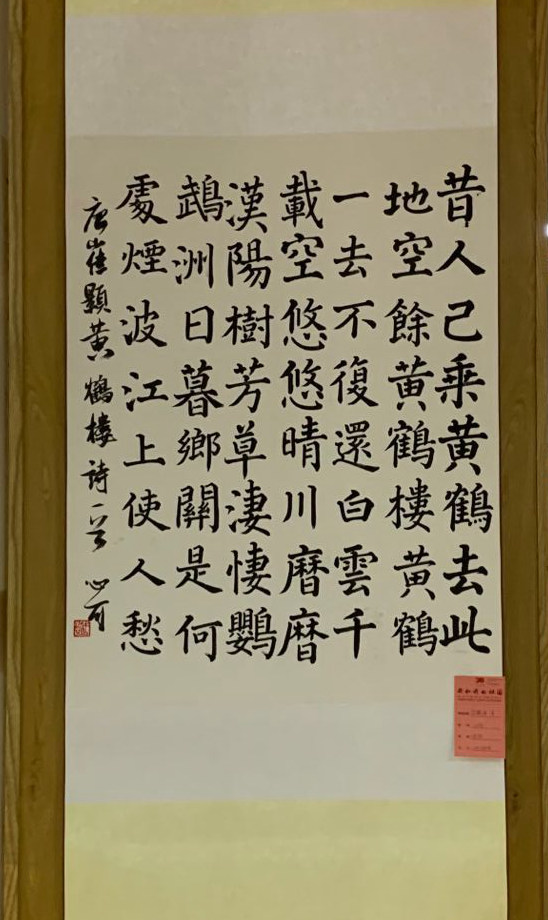 昔人己乘黄鶴去此
地空餘黄鶴樓黄鶴
一去不復還白雲千
載空悠悠晴川曆曆
漢陽樹芳草淒悽鸚
鵡洲日暮鄉關是何
處煙波江上使人愁
唐崔顥黄鶴樓詩一首 心可